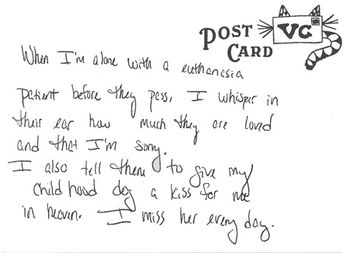 POST
CARD
VC
When I'm alone with a euthanasia
patient before they pass, I whisper in
their ear how much they are loved
and that I'm sorry.
I also tell them to give my
childhood dog a kiss for me
in heaven. I miss her every day.